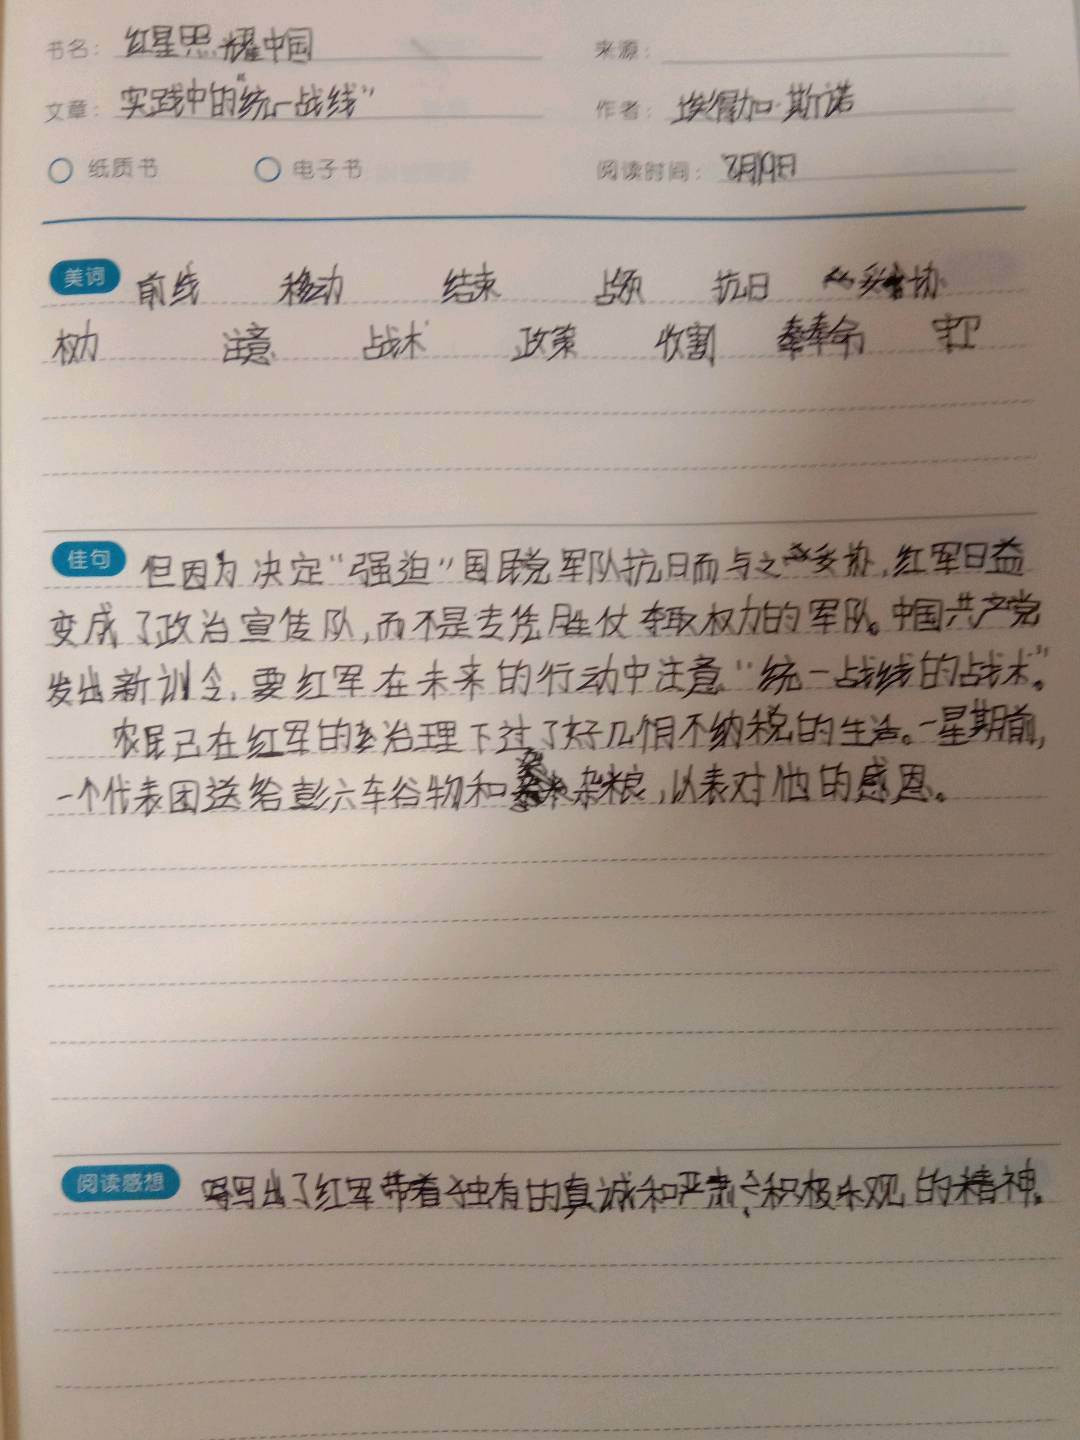 书名： 红星照耀中国 来源：
文章： 实践中的"统一战线" 作者： 埃得加·斯诺
纸质书 电子书 阅读时间： 2月19日
美词 前线 移动 结束 占领 抗日 妥协
权力 注意 战术 政策 收割 奉命
佳句 但因为决定"强迫"国民党军队抗日而与之妥协,红军日益
变成了政治宣传队,而不是专凭胜仗夺取权力的军队。中国共产党
发出新训令,要红军在未来的行动中注意"统一战线的战术"。
农民已在红军的治理下过了好几个月不纳税的生活。一星期前,
一个代表团送给彭六车谷物和杂粮,以表对他的感恩。
阅读感想 写出了红军带着独有的真诚和严肃、积极乐观的精神。